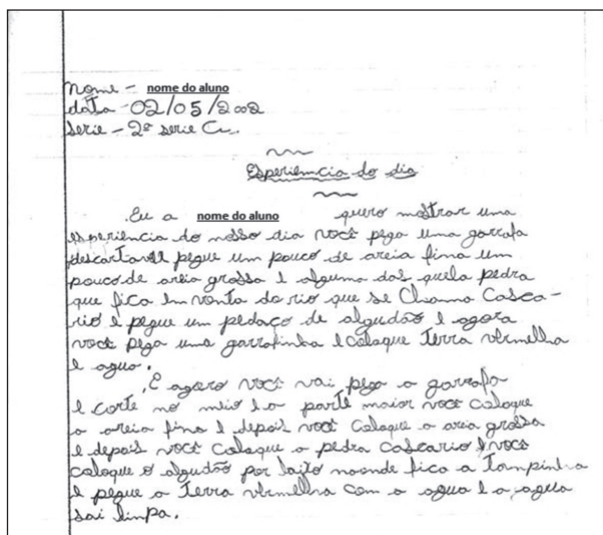 Nome - nome do aluno
data - 02/05/2002
Serie - 2ª serie C.
Esperiemcia do dia
Eu a nome do aluno quero mostrar uma
esperiência do nosso dia você pega uma garrafa
descartavel pegue um pouco de areia fina um
pouco de areia grossa e alguma das quela pedra
que fica em vonta do rio que se Chama Casca-
rio e pegue um pedaço de algudão e agora
você pega uma garrafinha e calaque Terra vermelha
e agua.
E agora você vai pega a garrafa
e corte no meio e a parte maior você calaque
a areia fina e depois você calaque a areia grossa
e depois você calaque a pedra cascario e você
calaque o algudão por baito naonde fica a Tampinha
e pegue a Terra vermelha com a agua e a agua
sai limpa.